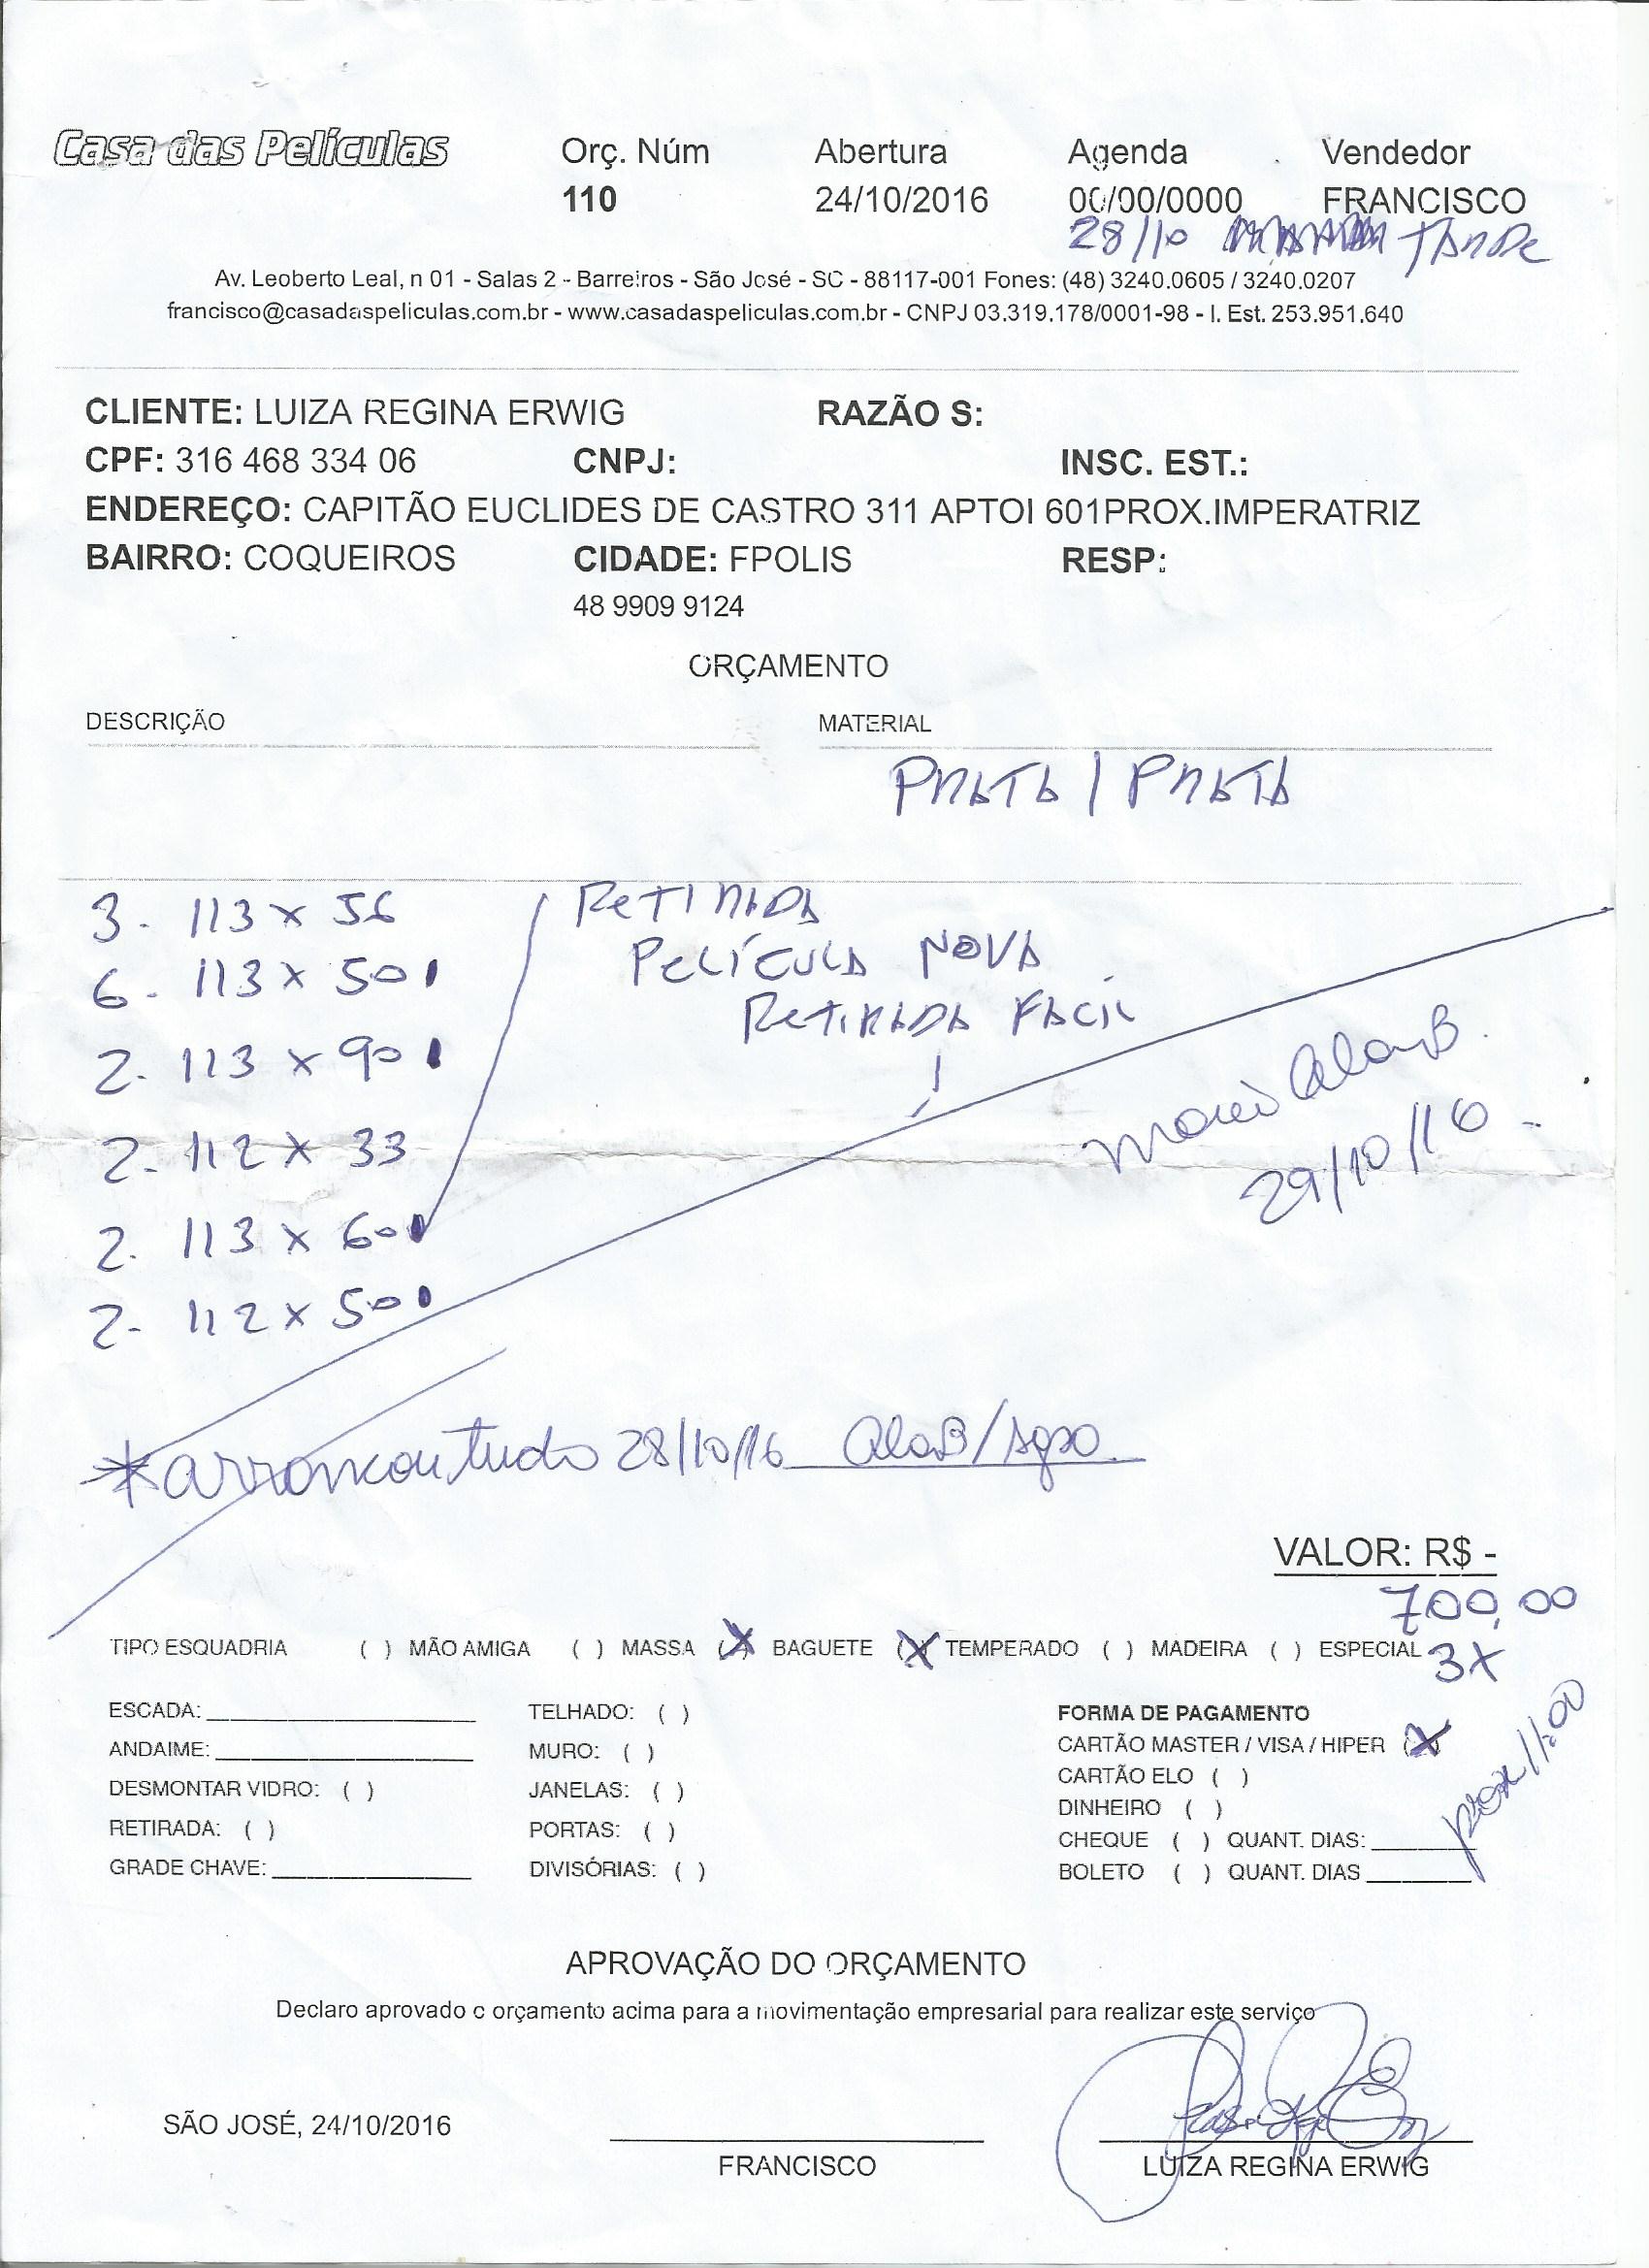 Casa das Películas
Orç. Núm Abertura Agenda Vendedor
110 24/10/2016 00/00/0000 FRANCISCO
28/10 TARDE
Av. Leoberto Leal, n 01 - Salas 2 - Barreiros - São José - SC - 88117-001 Fones: (48) 3240.0605 / 3240.0207
francisco@casadaspeliculas.com.br - www.casadaspeliculas.com.br - CNPJ 03.319.178/0001-98 - I. Est. 253.951.640
CLIENTE: LUIZA REGINA ERWIG RAZÃO S:
CPF: 316 468 334 06 CNPJ: INSC. EST.:
ENDEREÇO: CAPITÃO EUCLIDES DE CASTRO 311 APTOI 601PROX.IMPERATRIZ
BAIRRO: COQUEIROS CIDADE: FPOLIS RESP:
48 9909 9124
ORÇAMENTO
DESCRIÇÃO MATERIAL
PRATA / PRATA
3. 113 x 56
6. 113 x 50
2. 113 x 90
2. 112 x 33
2. 113 x 60
2. 112 x 50
RETIRADA
PELÍCULA NOVA
RETIRADA FACIL
29/10/16
*arrancou tudo 28/10/16
VALOR: R$ -
700,00
3X
TIPO ESQUADRIA ( ) MÃO AMIGA ( ) MASSA (X) BAGUETE (X) TEMPERADO ( ) MADEIRA ( ) ESPECIAL
ESCADA:
ANDAIME:
DESMONTAR VIDRO: ( )
RETIRADA: ( )
GRADE CHAVE:
TELHADO: ( )
MURO: ( )
JANELAS: ( )
PORTAS: ( )
DIVISÓRIAS: ( )
FORMA DE PAGAMENTO
CARTÃO MASTER / VISA / HIPER (X)
CARTÃO ELO ( )
DINHEIRO ( )
CHEQUE ( ) QUANT. DIAS:
BOLETO ( ) QUANT. DIAS
APROVAÇÃO DO ORÇAMENTO
Declaro aprovado o orçamento acima para a movimentação empresarial para realizar este serviço
SÃO JOSÉ, 24/10/2016
FRANCISCO
LUIZA REGINA ERWIG